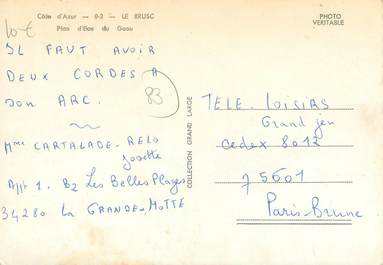 Côte d'Azur — 0-3 — LE BRUSC
Plan d'Eau du Gaou
PHOTO
VERITABLE
IL FAUT AVOIR
DEUX CORDES A
SON ARC.
83
Mme CARTALADE-RELO
Josette
Appt 1. B2 Les Belles Plages
34280 La GRANDE-MOTTE
COLLECTION GRAND LARGE
TELE-LOISIRS
Grand jeu
Cedex 8012
75601
Paris-Brune